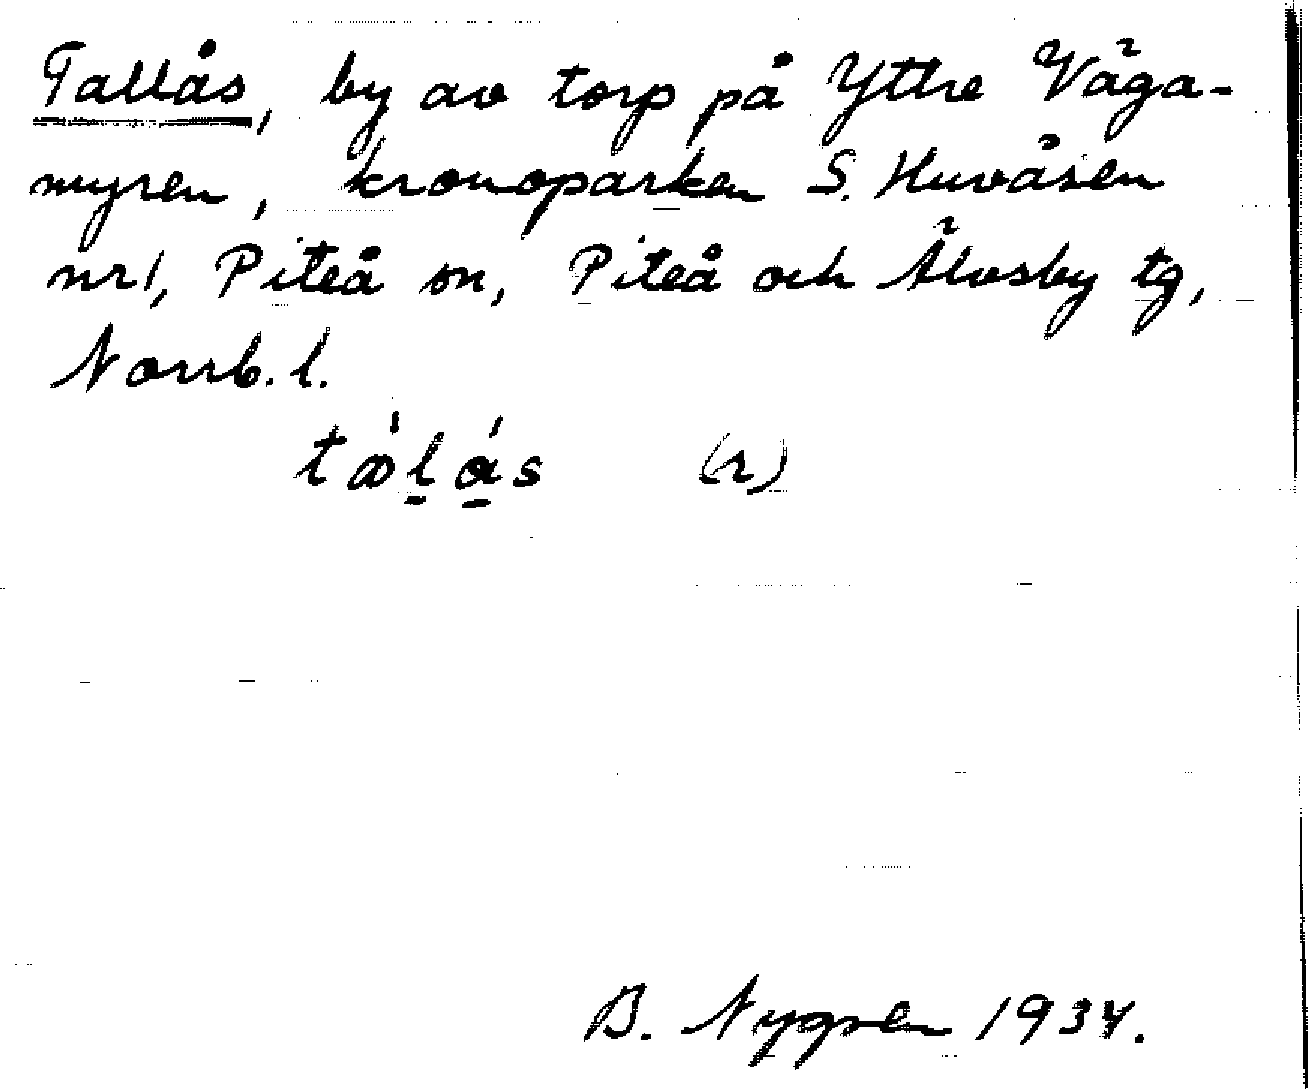 Tallås, by av torp på Yttre Våga-
myren, kronoparken S. Huvåsen
nr 1, Piteå sn, Piteå och Älvsby tg,
Norrb. l.
(r)
B. Nygren 1934.